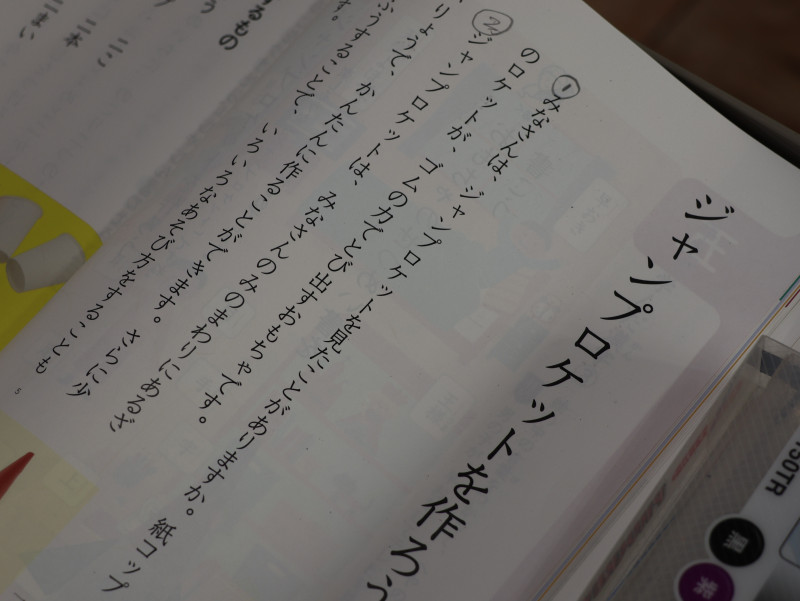 ジャンプロケットを作ろう
① みなさんは、ジャンプロケットを見たことがありますか。紙コップ
のロケットが、ゴムの力でとび出すおもちゃです。
② ジャンプロケットは、みなさんのみのまわりにあるざ
りょうで、かんたんに作ることができます。さらに少
ふうすることで、いろいろなあそび方をすることも
す。
るもの
二こ
二本
二まい
5
50TR
黒
紫